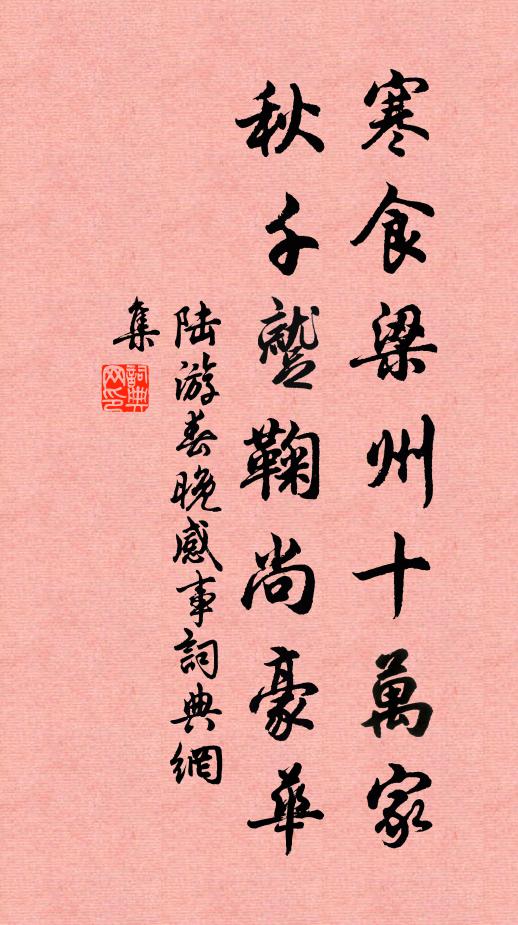 寒食梁州十萬家
秋千蹵鞠尚豪華
陸游春晚感事詞典網
集
詞典網印